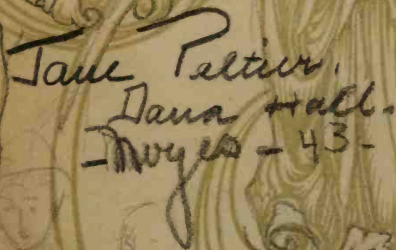 Jane Peltier.
Dana Hall.
- Noyes - 43 -